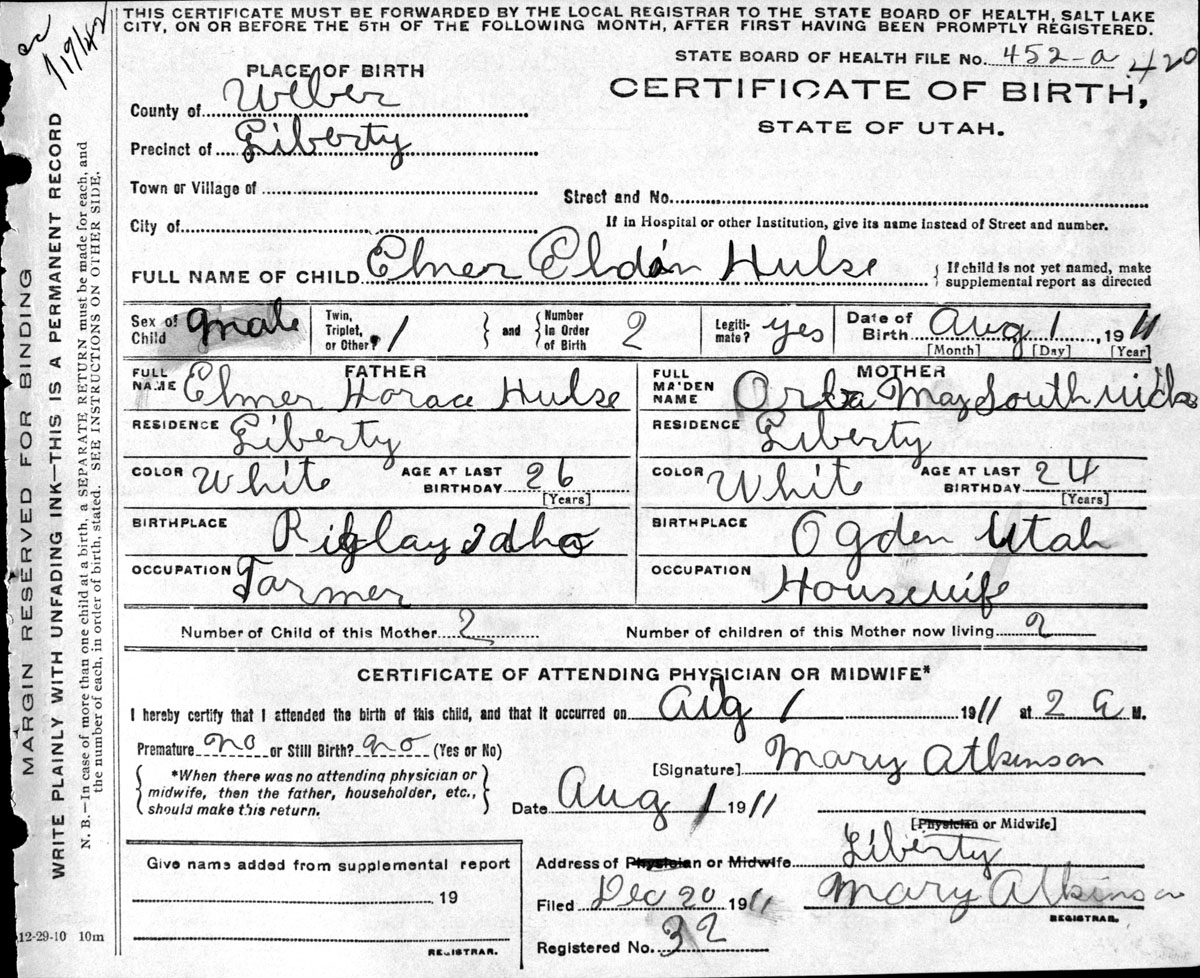 THIS CERTIFICATE MUST BE FORWARDED BY THE LOCAL REGISTRAR TO THE STATE BOARD OF HEALTH, SALT LAKE
CITY, ON OR BEFORE THE 5TH OF THE FOLLOWING MONTH, AFTER FIRST HAVING BEEN PROMPTLY REGISTERED.
STATE BOARD OF HEALTH FILE No. 452-a 420
PLACE OF BIRTH
CERTIFICATE OF BIRTH,
STATE OF UTAH.
County of Weber
Precinct of Liberty
Town or Village of
Street and No.
City of
If in Hospital or other Institution, give its name instead of Street and number.
FULL NAME OF CHILD Elmer Eldon Hulse { If child is not yet named, make supplemental report as directed
Sex of Child male Twin, Triplet, or Other? 1 } and { Number in Order of Birth 2 Legitimate? yes Date of Birth Aug 1, 1911
[Month] [Day] [Year]
FATHER MOTHER
FULL NAME Elmer Horace Hulse FULL MAIDEN NAME May Southwick
RESIDENCE Liberty RESIDENCE Liberty
COLOR White AGE AT LAST BIRTHDAY 26 [Years] COLOR White AGE AT LAST BIRTHDAY 24 [Years]
BIRTHPLACE Idho BIRTHPLACE Ogden Utah
OCCUPATION Farmer OCCUPATION Housewife
Number of Child of this Mother 2 Number of children of this Mother now living 2
CERTIFICATE OF ATTENDING PHYSICIAN OR MIDWIFE*
I hereby certify that I attended the birth of this child, and that it occurred on Aug 1 1911 at 2 a M.
Premature no or Still Birth? no (Yes or No)
*When there was no attending physician or
midwife, then the father, householder, etc.,
should make this return.
[Signature] Mary Atkinson
Date Aug 1 1911
[Physician or Midwife]
Give name added from supplemental report
19
REGISTRAR.
Address of Physician or Midwife Liberty
Filed Dec 20 1911 Mary Atkinson
REGISTRAR.
Registered No. 32
12-29-10 10m
MARGIN RESERVED FOR BINDING
WRITE PLAINLY WITH UNFADING INK—THIS IS A PERMANENT RECORD
N. B.—In case of more than one child at a birth, a SEPARATE RETURN must be made for each, and
the number of each, in order of birth, stated. SEE INSTRUCTIONS ON OTHER SIDE.